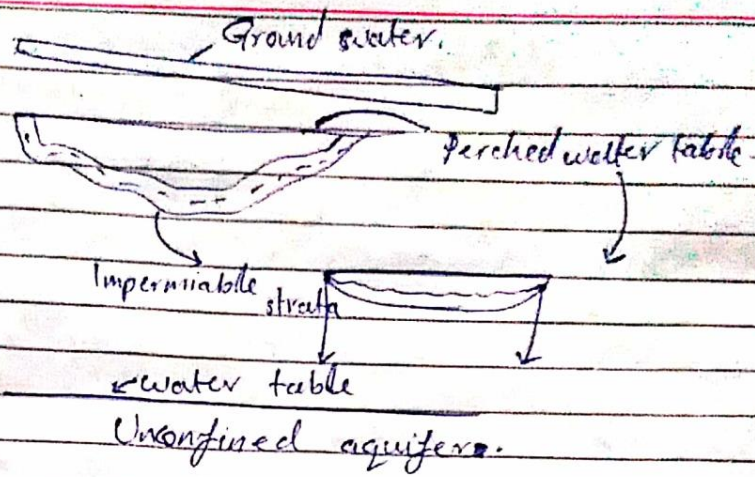 Ground water.
Perched water table
Impermiable
strata
water table
Unconfined aquifers.